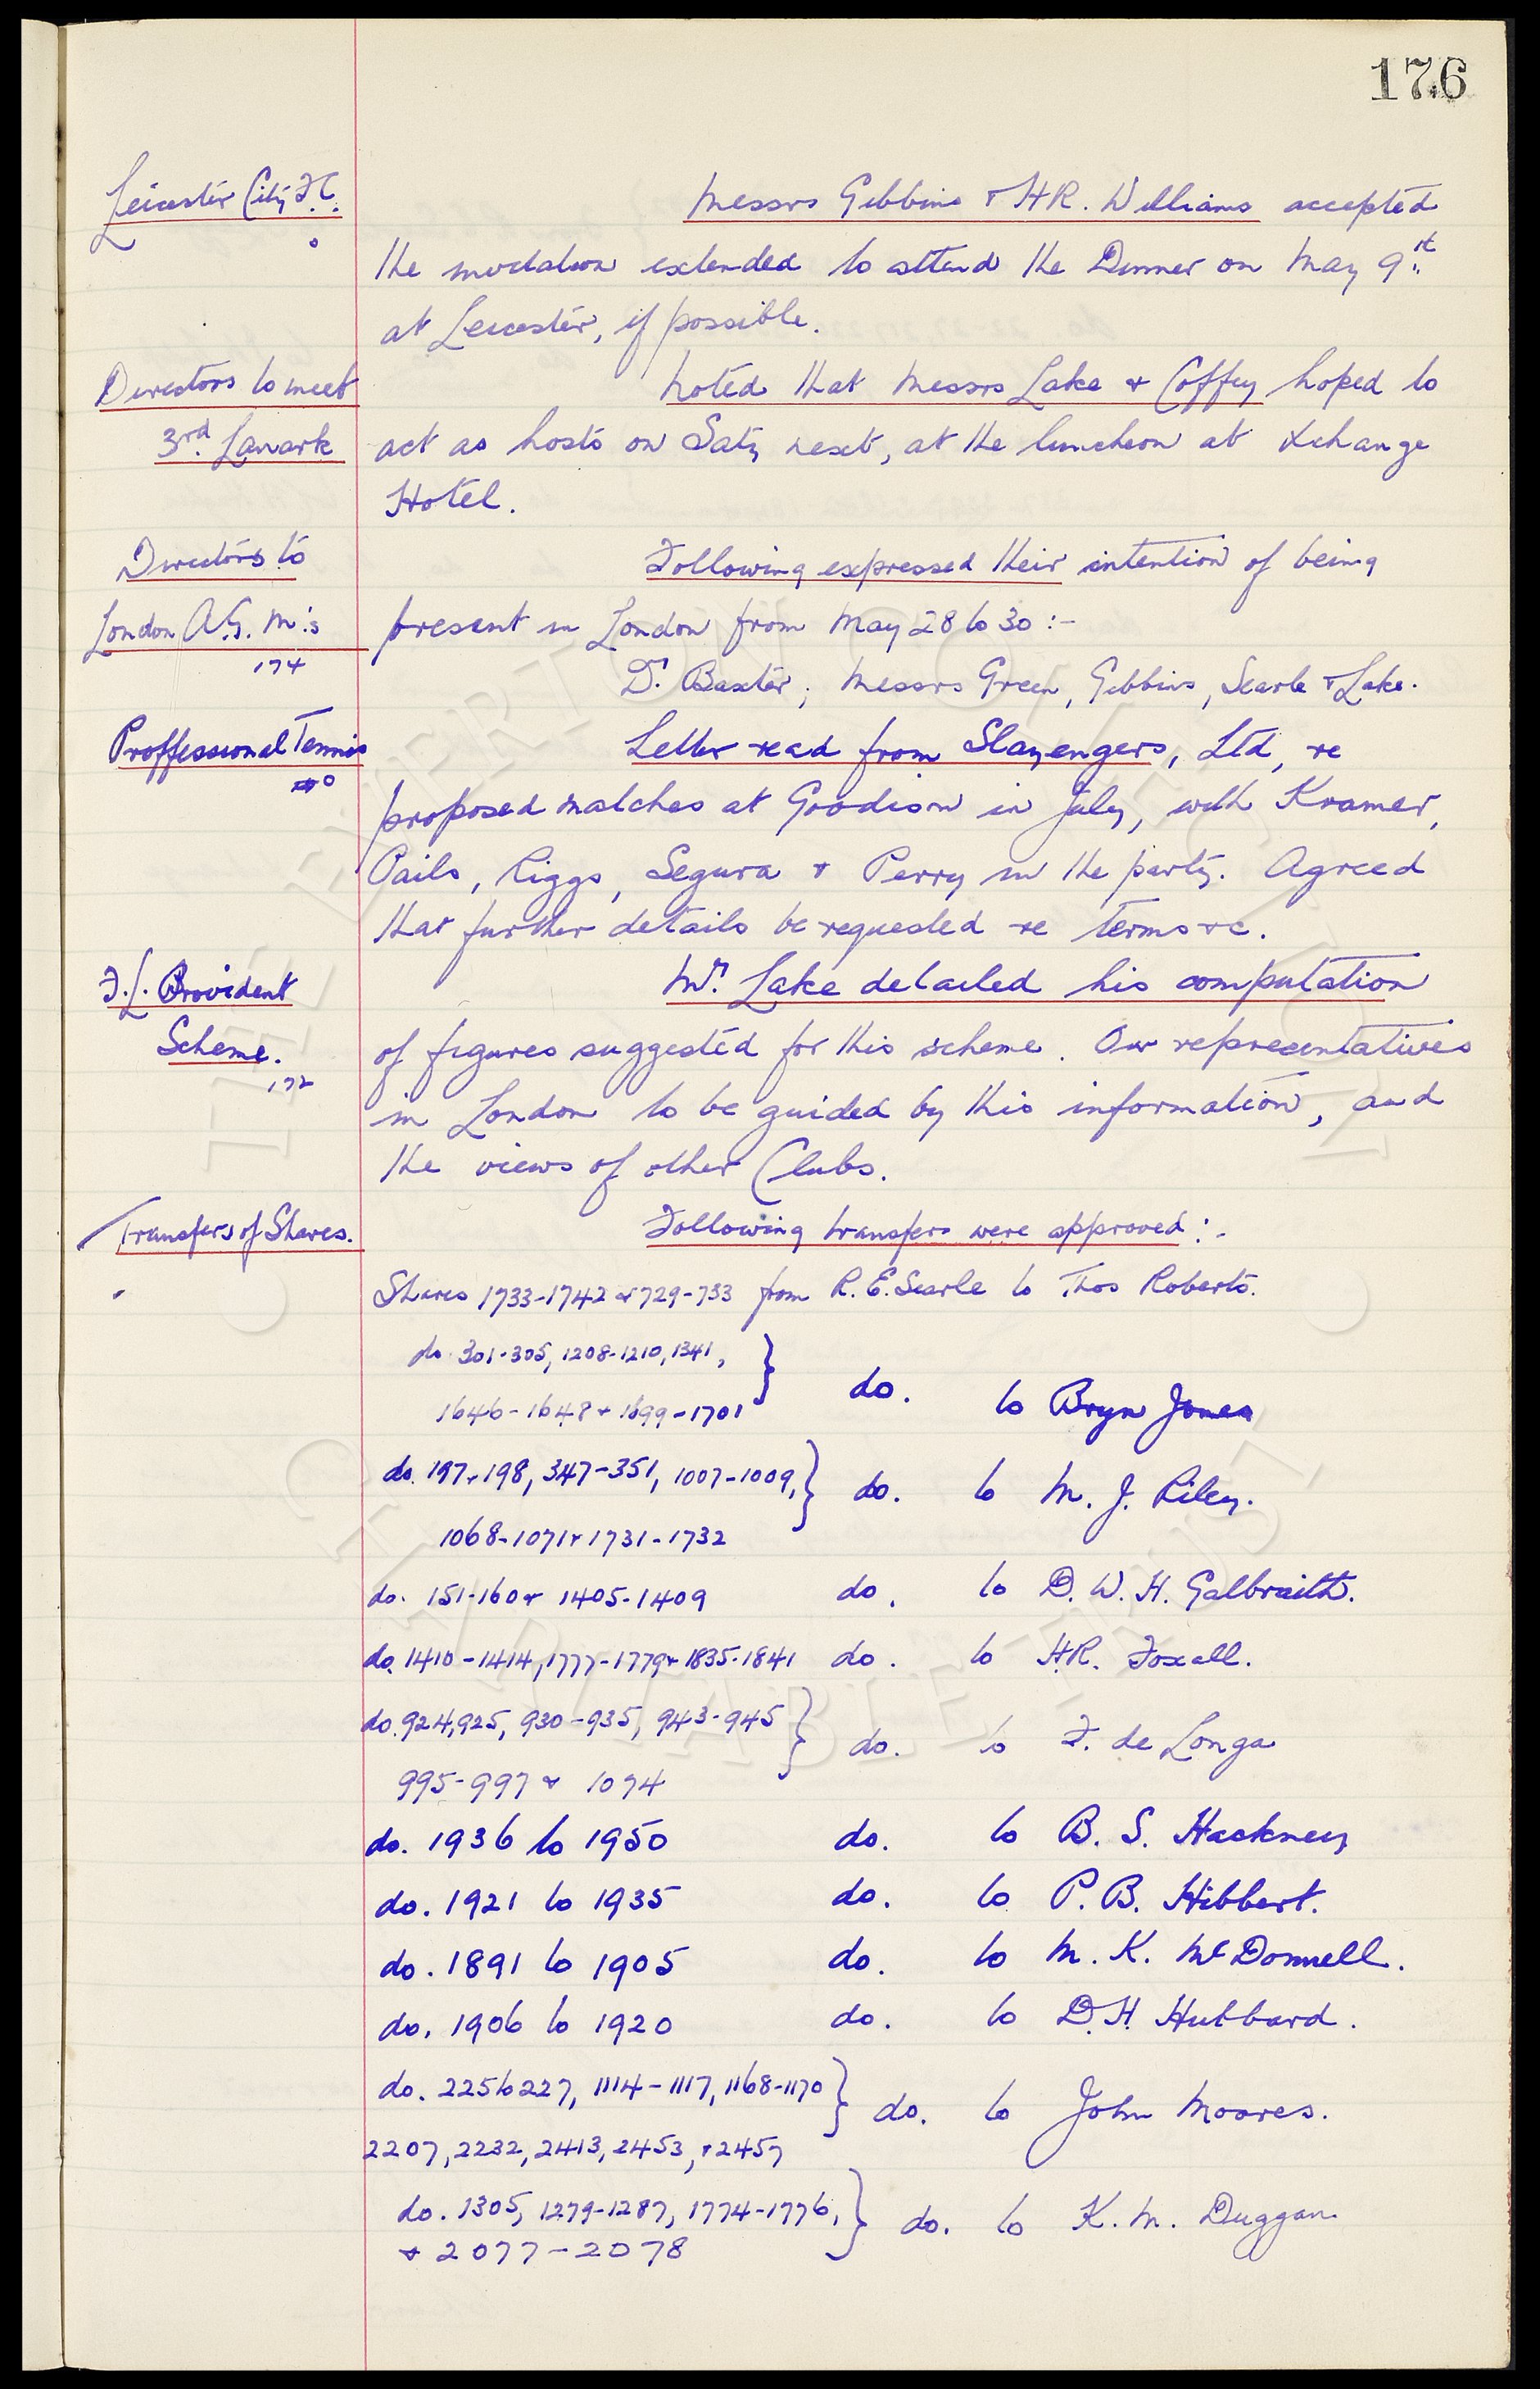 176
Leicester City F.C. Messrs Gibbins & H.R. Williams accepted
the invitation extended to attend the Dinner on May 9th
at Leicester, if possible.
Directors to meet Noted that Messrs Lake & Coffey hoped to
3rd Lanark act as hosts on Saty next, at the luncheon at Xchange
Hotel.
Directors to Following expressed their intention of being
London A.G.M's present in London from May 28 to 30 :-
174 Dr. Baxter, Messrs Green, Gibbins, Searle & Lake.
Proffessional Tennis Letter read from Slazengers, Ltd, re
proposed matches at Goodison in July, with Kramer,
Pails, Riggs, Segura & Perry in the party. Agreed
that further details be requested re terms &c.
F.L. Provident Mr. Lake detailed his computation
Scheme. of figures suggested for this scheme. Our representatives
172 in London to be guided by this information, and
the views of other Clubs.
Transfers of Shares. Following transfers were approved :-
Shares 1733-1742 & 729-733 from R. E. Searle to Thos Roberts.
do. 301-305, 1208-1210, 1341,
1646-1648 & 1699-1701 } do. to Bryn Jones
do. 197 & 198, 347-351, 1007-1009,
1068-1071 & 1731-1732 } do. to M. J. Riley.
do. 151-160 & 1405-1409 do. to D. W. H. Galbraith.
do. 1410-1414, 1777-1779 & 1835-1841 do. to H.R. Foxall.
do. 924, 925, 930-935, 943-945
995-997 & 1074 } do. to F. de Longa
do. 1936 to 1950 do. to B. S. Hackney
do. 1921 to 1935 do. to P. B. Hibbert.
do. 1891 to 1905 do. to M. K. McDonnell.
do. 1906 to 1920 do. to D. H. Hubbard.
do. 225 to 227, 1114-1117, 1168-1170
2207, 2232, 2413, 2453, & 2457 } do. to John Moores.
do. 1305, 1279-1287, 1774-1776,
& 2077-2078 } do. to K. M. Duggan
THE EVERTON COLLECTION
CHARITABLE TRUST